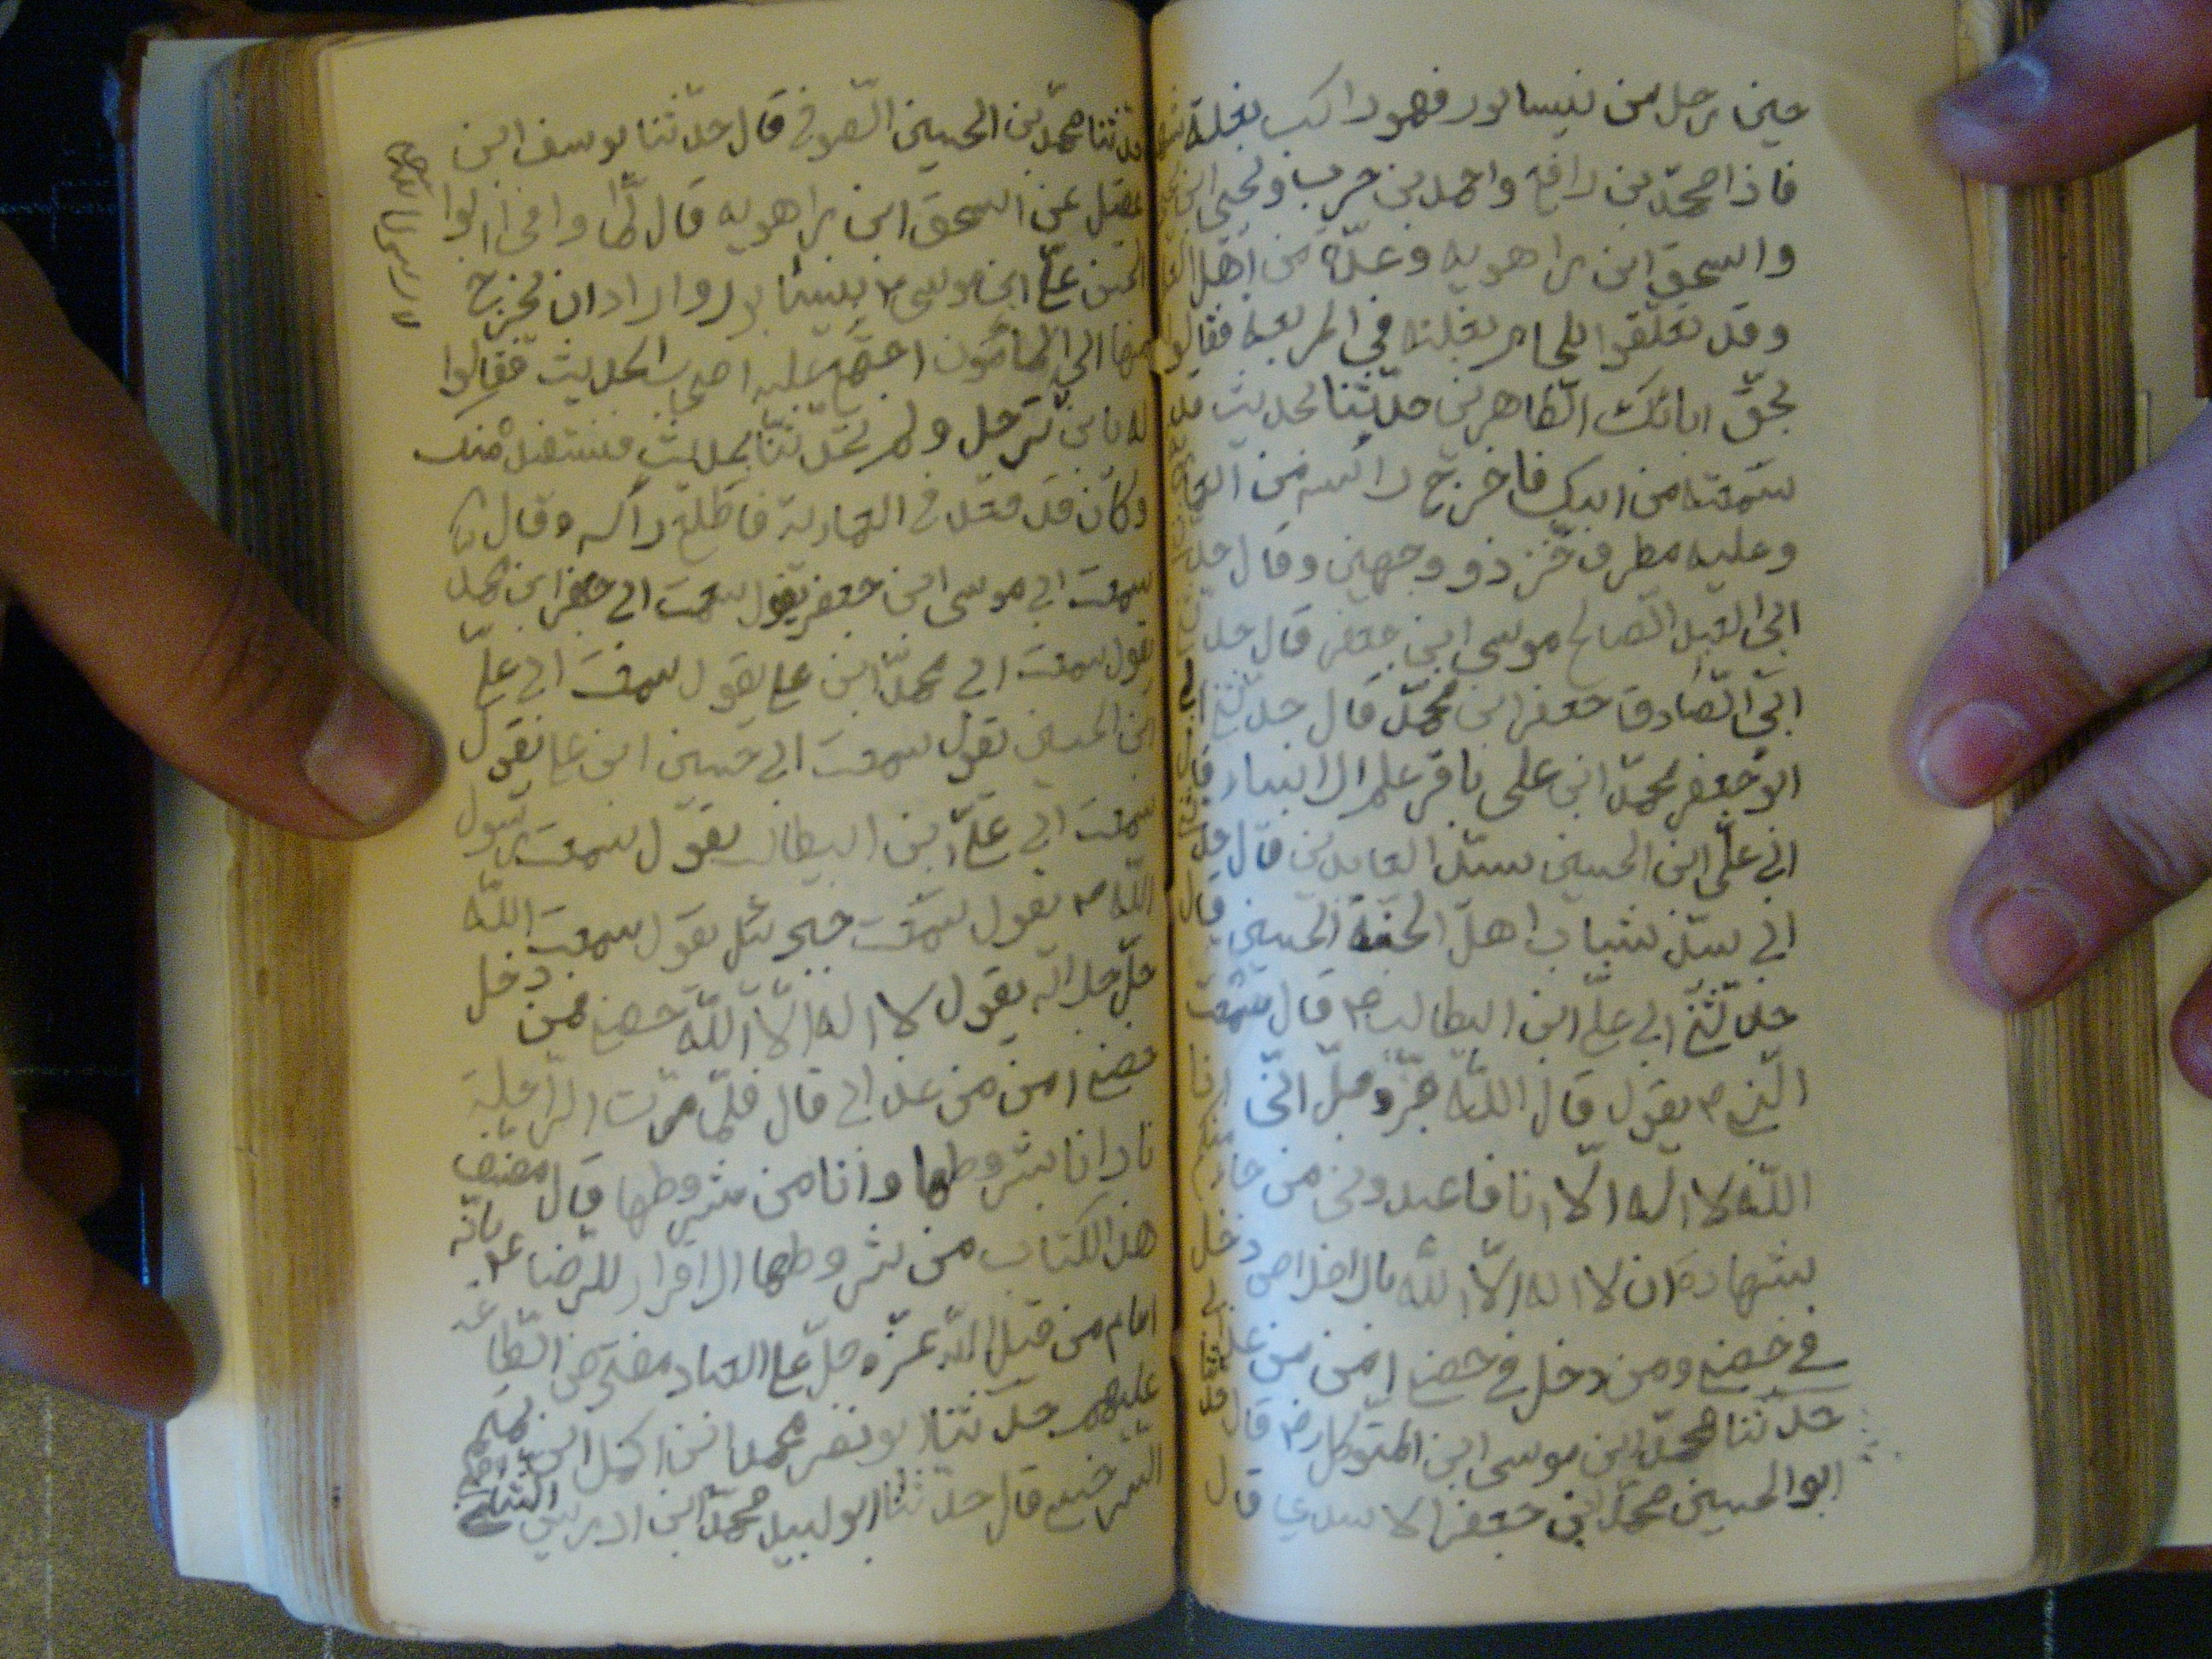 حين رحل من نيسابور فهو راكب بغلة
فاذا محمّد بن رافع واحمد بن حرب ويحيى ابن
واسحق ابن راهويه وعدّة من اهل
وقد تعلّقوا بلجام بغلته في المربعه فقالوا
بحقّ ابائك الطّاهرين حدّثنا بحديث قد
سمعته من ابيك فاخرج راسه من
وعليه مطرف خزّ ذو وجهين وقال
ابي العبد الصّالح موسى ابن جعفر قال حدثني
ابي الصّادق جعفر ابن محمّد قال حدثني ابي
ابو جعفر محمّد ابن على باقر علم الانبياء قال
ابي علىّ ابن الحسين سيّد العابدين قال
ابي سيّد شباب اهل الجنّة الحسين قال
حدّثني ابي علىّ ابن ابيطالب ع قال سمعت
النّبي ص يقول قال اللّه عزّ وجلّ انّي انا
اللّه لا اله الّا انا فاعبدوني من جاء منكم
بشهادة ان لا اله الّا اللّه بالاخلاص دخل
في حصني ومن دخل في حصني امن من عذابي
حدّثنا محمّد ابن موسى ابن المتوكل رض قال
ابو الحسين محمّد ابن جعفر الاسدي قال
حدثنا محمّد بن الحسين الصّوفي قال حدّثنا يوسف ابن
عقيل عن اسحق ابن راهويه قال لمّا وافى ابوا
الحسن علىّ ابن موسى ع بنيسابور واراد ان يخرج
منها الى المأمون اجتمع عليه اصحاب الحديث فقالوا
له يابن ترحل ولم تحدّثنا بحديث فنستفيد منك
وكان قد قعد في العمارية فاطلع راسه وقال
سمعت ابي موسى ابن جعفر يقول سمعت ابي جعفر ابن محمد
يقول سمعت ابي محمّد ابن على يقول سمعت ابي علىّ
ابن الحسين يقول سمعت ابي حسين ابن على يقول
سمعت ابي علىّ ابن ابيطالب يقول سمعت رسول
اللّه ص يقول سمعت جبرئيل يقول سمعت اللّه
جلّ جلاله يقول لا اله الّا اللّه حصني فمن دخل
حصني امن من عذابي قال فلمّا مرّت الرّاحلة
نادانا بشروطها وانا من شروطها قال مصنف
هذا الكتاب من شروطها الاقرار للرّضا ع بانّه
امام من قبل اللّه عزّ وجلّ على العباد مفترض الطّاعة
عليهم حدّثنا ابو نصر محمد ابن احمد ابن تميم
السّرخسي قال حدّثنا ابو لبيد محمّد ابن ادريس الشّامي